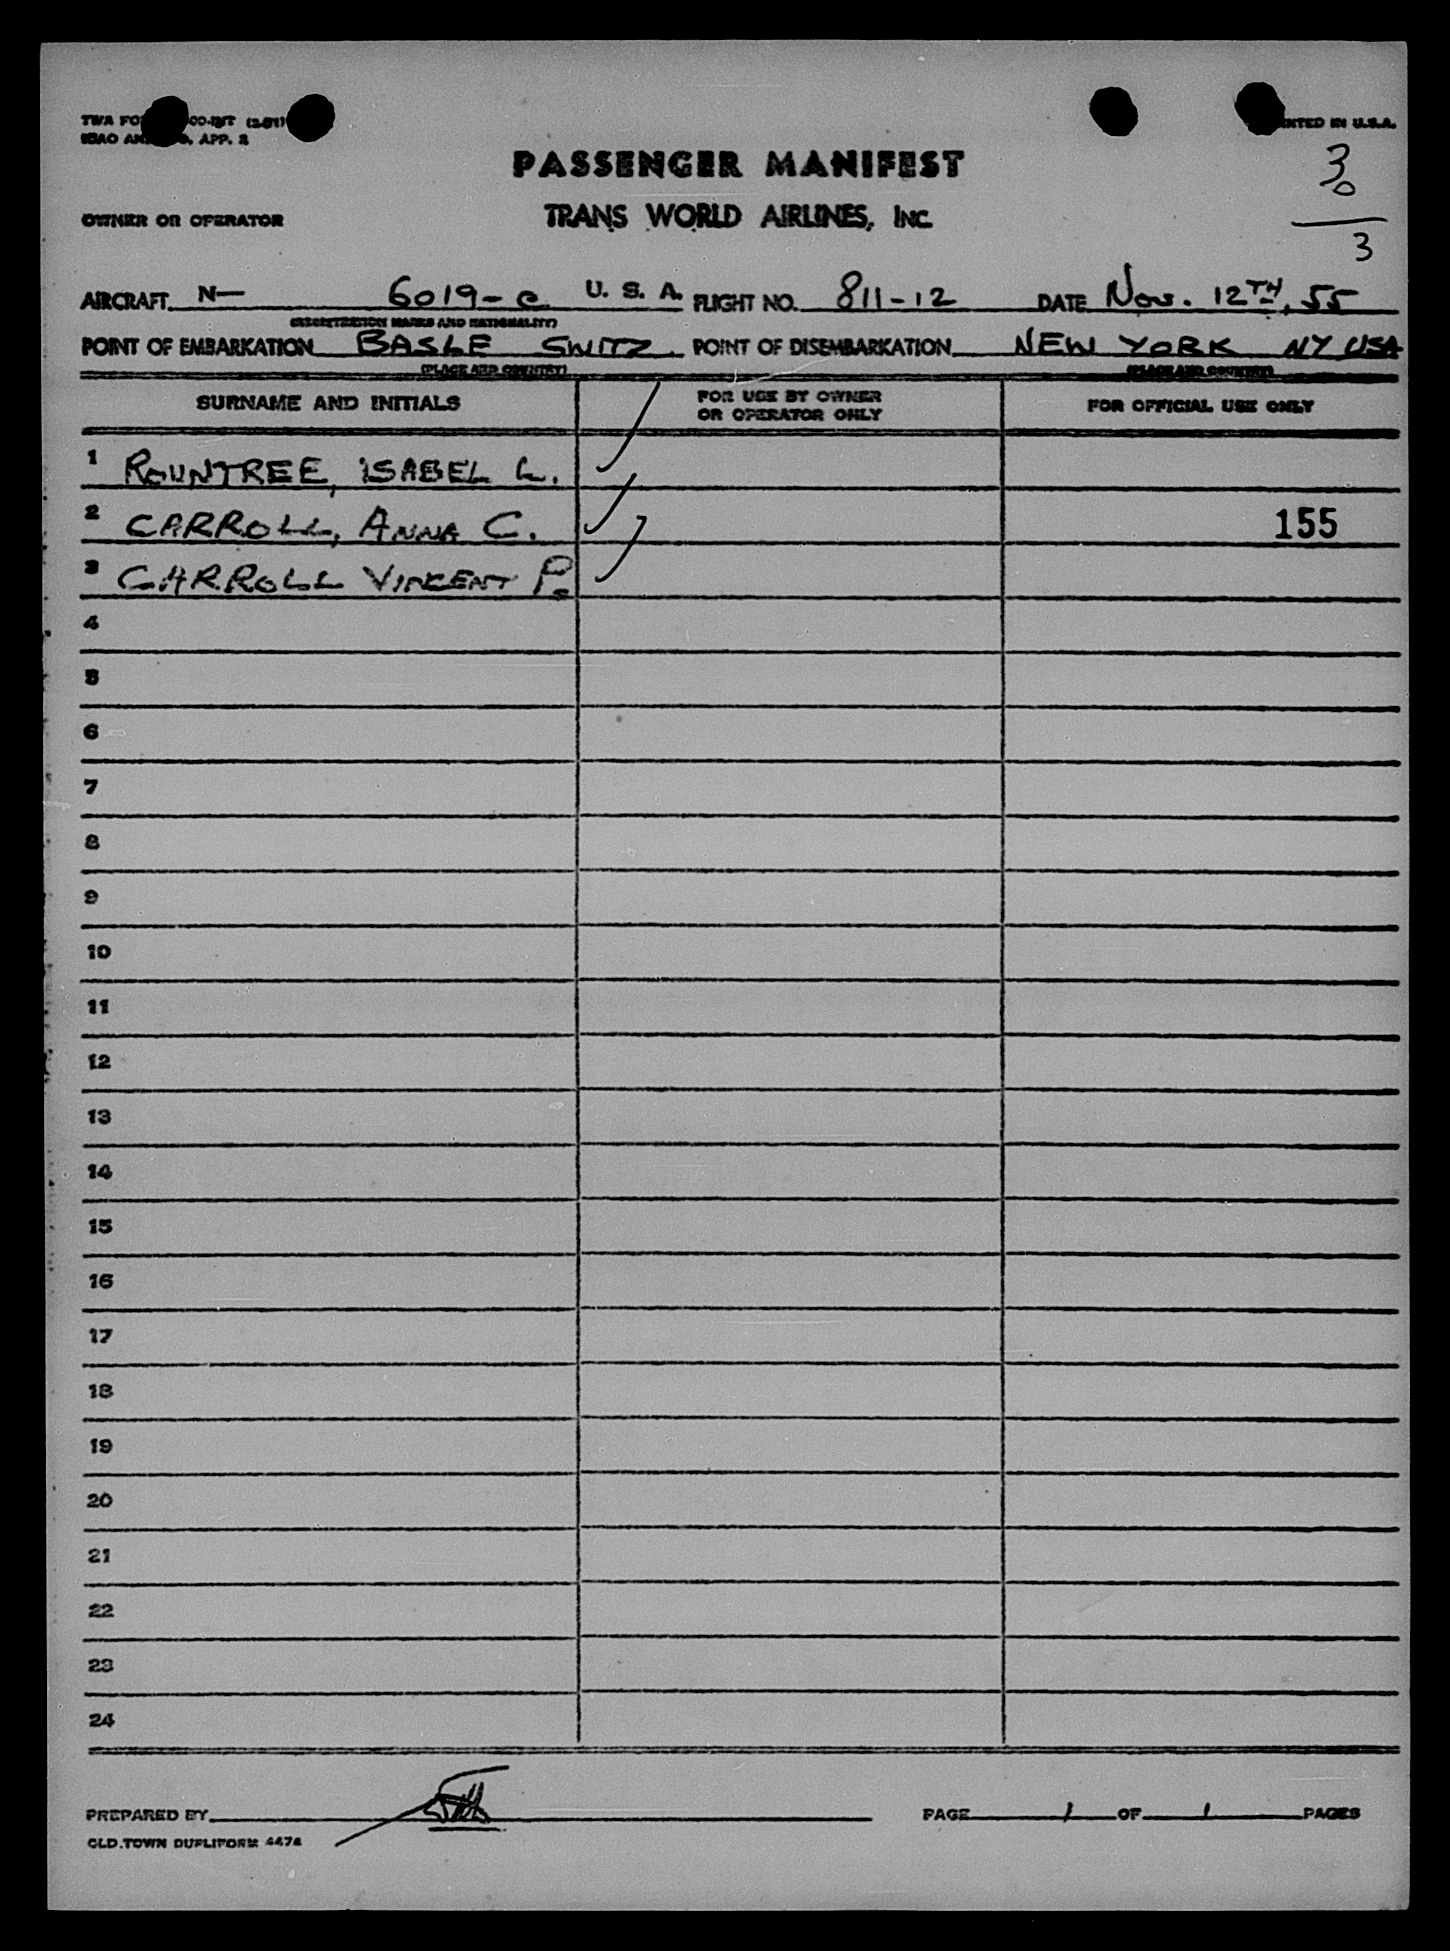 TWA FO CO-INT (2-51)
ICAO AN APP. 2
NTED IN U.S.A.
PASSENGER MANIFEST
30
3
OWNER OR OPERATOR
TRANS WORLD AIRLINES, INC.
AIRCRAFT N— 6019-C U. S. A. FLIGHT NO. 811-12 DATE Nov. 12TH, 55
(REGISTRATION MARKS AND NATIONALITY)
POINT OF EMBARKATION BASLE SWITZ. POINT OF DISEMBARKATION NEW YORK NY USA
(PLACE AND COUNTRY) (PLACE AND COUNTRY)
SURNAME AND INITIALS FOR USE BY OWNER OR OPERATOR ONLY FOR OFFICIAL USE ONLY
1 ROUNTREE, ISABEL L.
2 CARROLL, ANNA C. 155
3 CARROLL VINCENT P.
4
5
6
7
8
9
10
11
12
13
14
15
16
17
18
19
20
21
22
23
24
PREPARED BY PAGE 1 OF 1 PAGES
OLD TOWN DUPLIFORM 4474